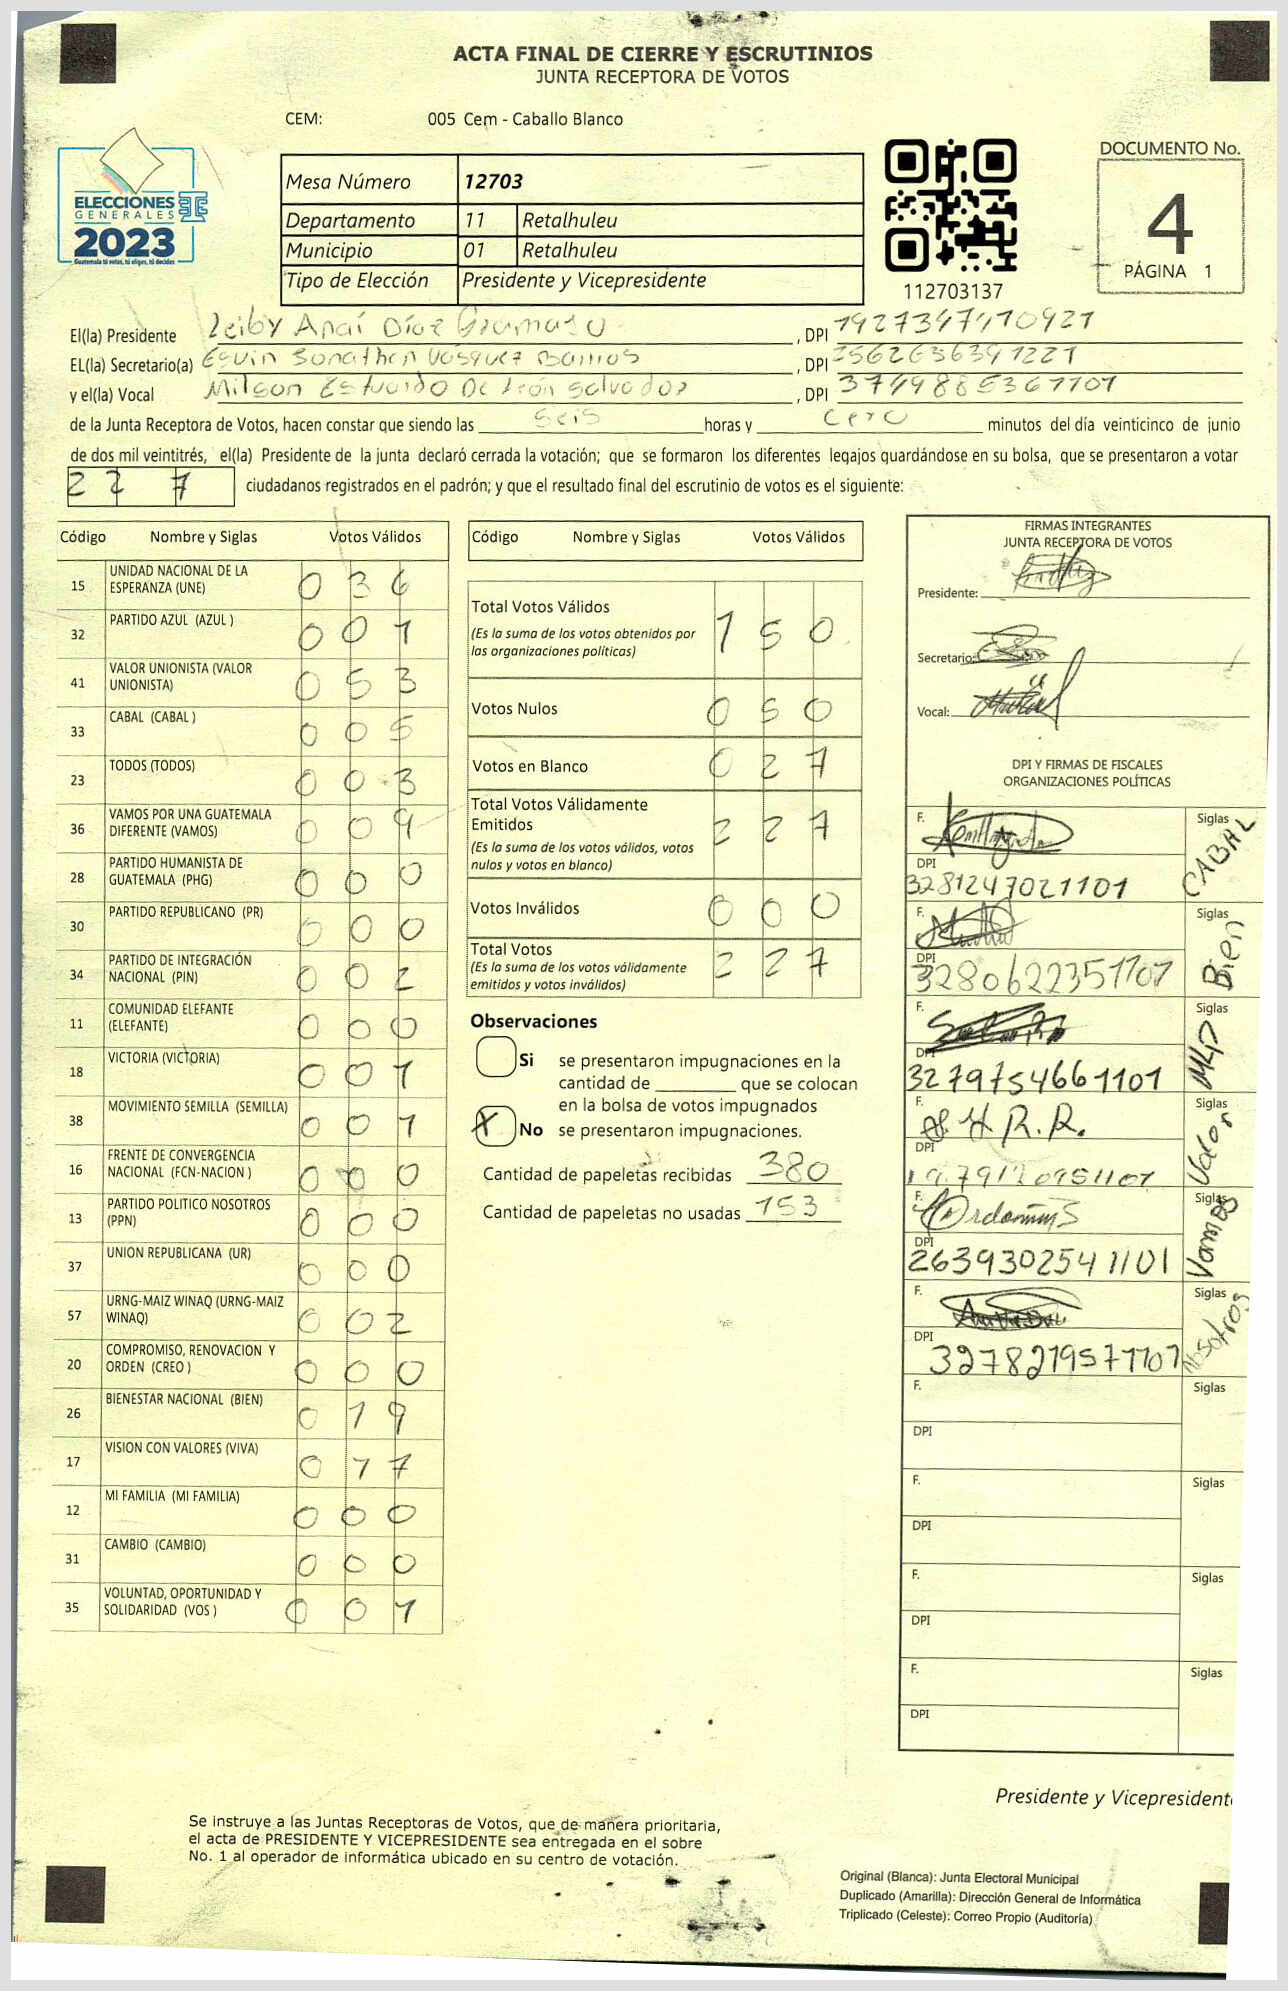 ACTA FINAL DE CIERRE Y ESCRUTINIOS
JUNTA RECEPTORA DE VOTOS
CEM: 005 Cem - Caballo Blanco
ELECCIONES
GENERALES
2023
Guatemala tú votas, tú eliges, tú decides
Mesa Número 12703
Departamento 11 Retalhuleu
Municipio 01 Retalhuleu
Tipo de Elección Presidente y Vicepresidente
112703137
DOCUMENTO No.
4
PÁGINA 1
El(la) Presidente Leiby Anaí Díaz , DPI 1927347410921
EL(la) Secretario(a) Esvin Jonathan Vásquez Barrios , DPI
y el(la) Vocal Milson Estuardo De León Salvador , DPI 3749885361101
de la Junta Receptora de Votos, hacen constar que siendo las seis horas y cero minutos del día veinticinco de junio
de dos mil veintitrés, el(la) Presidente de la junta declaró cerrada la votación; que se formaron los diferentes legajos quardándose en su bolsa, que se presentaron a votar
227 ciudadanos registrados en el padrón; y que el resultado final del escrutinio de votos es el siguiente:
Código Nombre y Siglas Votos Válidos
15 UNIDAD NACIONAL DE LA
ESPERANZA (UNE) 036
32 PARTIDO AZUL (AZUL ) 001
41 VALOR UNIONISTA (VALOR
UNIONISTA) 053
33 CABAL (CABAL ) 005
23 TODOS (TODOS) 003
36 VAMOS POR UNA GUATEMALA
DIFERENTE (VAMOS) 009
28 PARTIDO HUMANISTA DE
GUATEMALA (PHG) 000
30 PARTIDO REPUBLICANO (PR) 000
34 PARTIDO DE INTEGRACIÓN
NACIONAL (PIN) 002
11 COMUNIDAD ELEFANTE
(ELEFANTE) 000
18 VICTORIA (VICTORIA) 001
38 MOVIMIENTO SEMILLA (SEMILLA) 001
16 FRENTE DE CONVERGENCIA
NACIONAL (FCN-NACION ) 000
13 PARTIDO POLITICO NOSOTROS
(PPN) 000
37 UNION REPUBLICANA (UR) 000
57 URNG-MAIZ WINAQ (URNG-MAIZ
WINAQ) 002
20 COMPROMISO, RENOVACION Y
ORDEN (CREO ) 000
26 BIENESTAR NACIONAL (BIEN) 019
17 VISION CON VALORES (VIVA) 017
12 MI FAMILIA (MI FAMILIA) 000
31 CAMBIO (CAMBIO) 000
35 VOLUNTAD, OPORTUNIDAD Y
SOLIDARIDAD (VOS ) 001
Código Nombre y Siglas Votos Válidos
Total Votos Válidos 150
(Es la suma de los votos obtenidos por
las organizaciones políticas)
Votos Nulos 050
Votos en Blanco 027
Total Votos Válidamente
Emitidos 227
(Es la suma de los votos válidos, votos
nulos y votos en blanco)
Votos Inválidos 000
Total Votos 227
(Es la suma de los votos válidamente
emitidos y votos inválidos)
Observaciones
Si se presentaron impugnaciones en la
cantidad de ________ que se colocan
en la bolsa de votos impugnados
X No se presentaron impugnaciones.
Cantidad de papeletas recibidas 380
Cantidad de papeletas no usadas 153
FIRMAS INTEGRANTES
JUNTA RECEPTORA DE VOTOS
Presidente:
Secretario:
Vocal:
DPI Y FIRMAS DE FISCALES
ORGANIZACIONES POLÍTICAS
F. Siglas CABAL
DPI
3281247021101
F. Siglas Bien
DPI
3280622351101
F. Siglas MLP
DPI
3279754661101
F. R.R. Siglas Valor
DPI
F. Siglas Vamos
DPI
2639302541101
F. Siglas Nosotros
DPI
3278219571101
F. Siglas
DPI
F. Siglas
DPI
F. Siglas
DPI
F. Siglas
DPI
Presidente y Vicepresident
Se instruye a las Juntas Receptoras de Votos, que de manera prioritaria,
el acta de PRESIDENTE Y VICEPRESIDENTE sea entregada en el sobre
No. 1 al operador de informática ubicado en su centro de votación.
Original (Blanca): Junta Electoral Municipal
Duplicado (Amarilla): Dirección General de Informática
Triplicado (Celeste): Correo Propio (Auditoría)